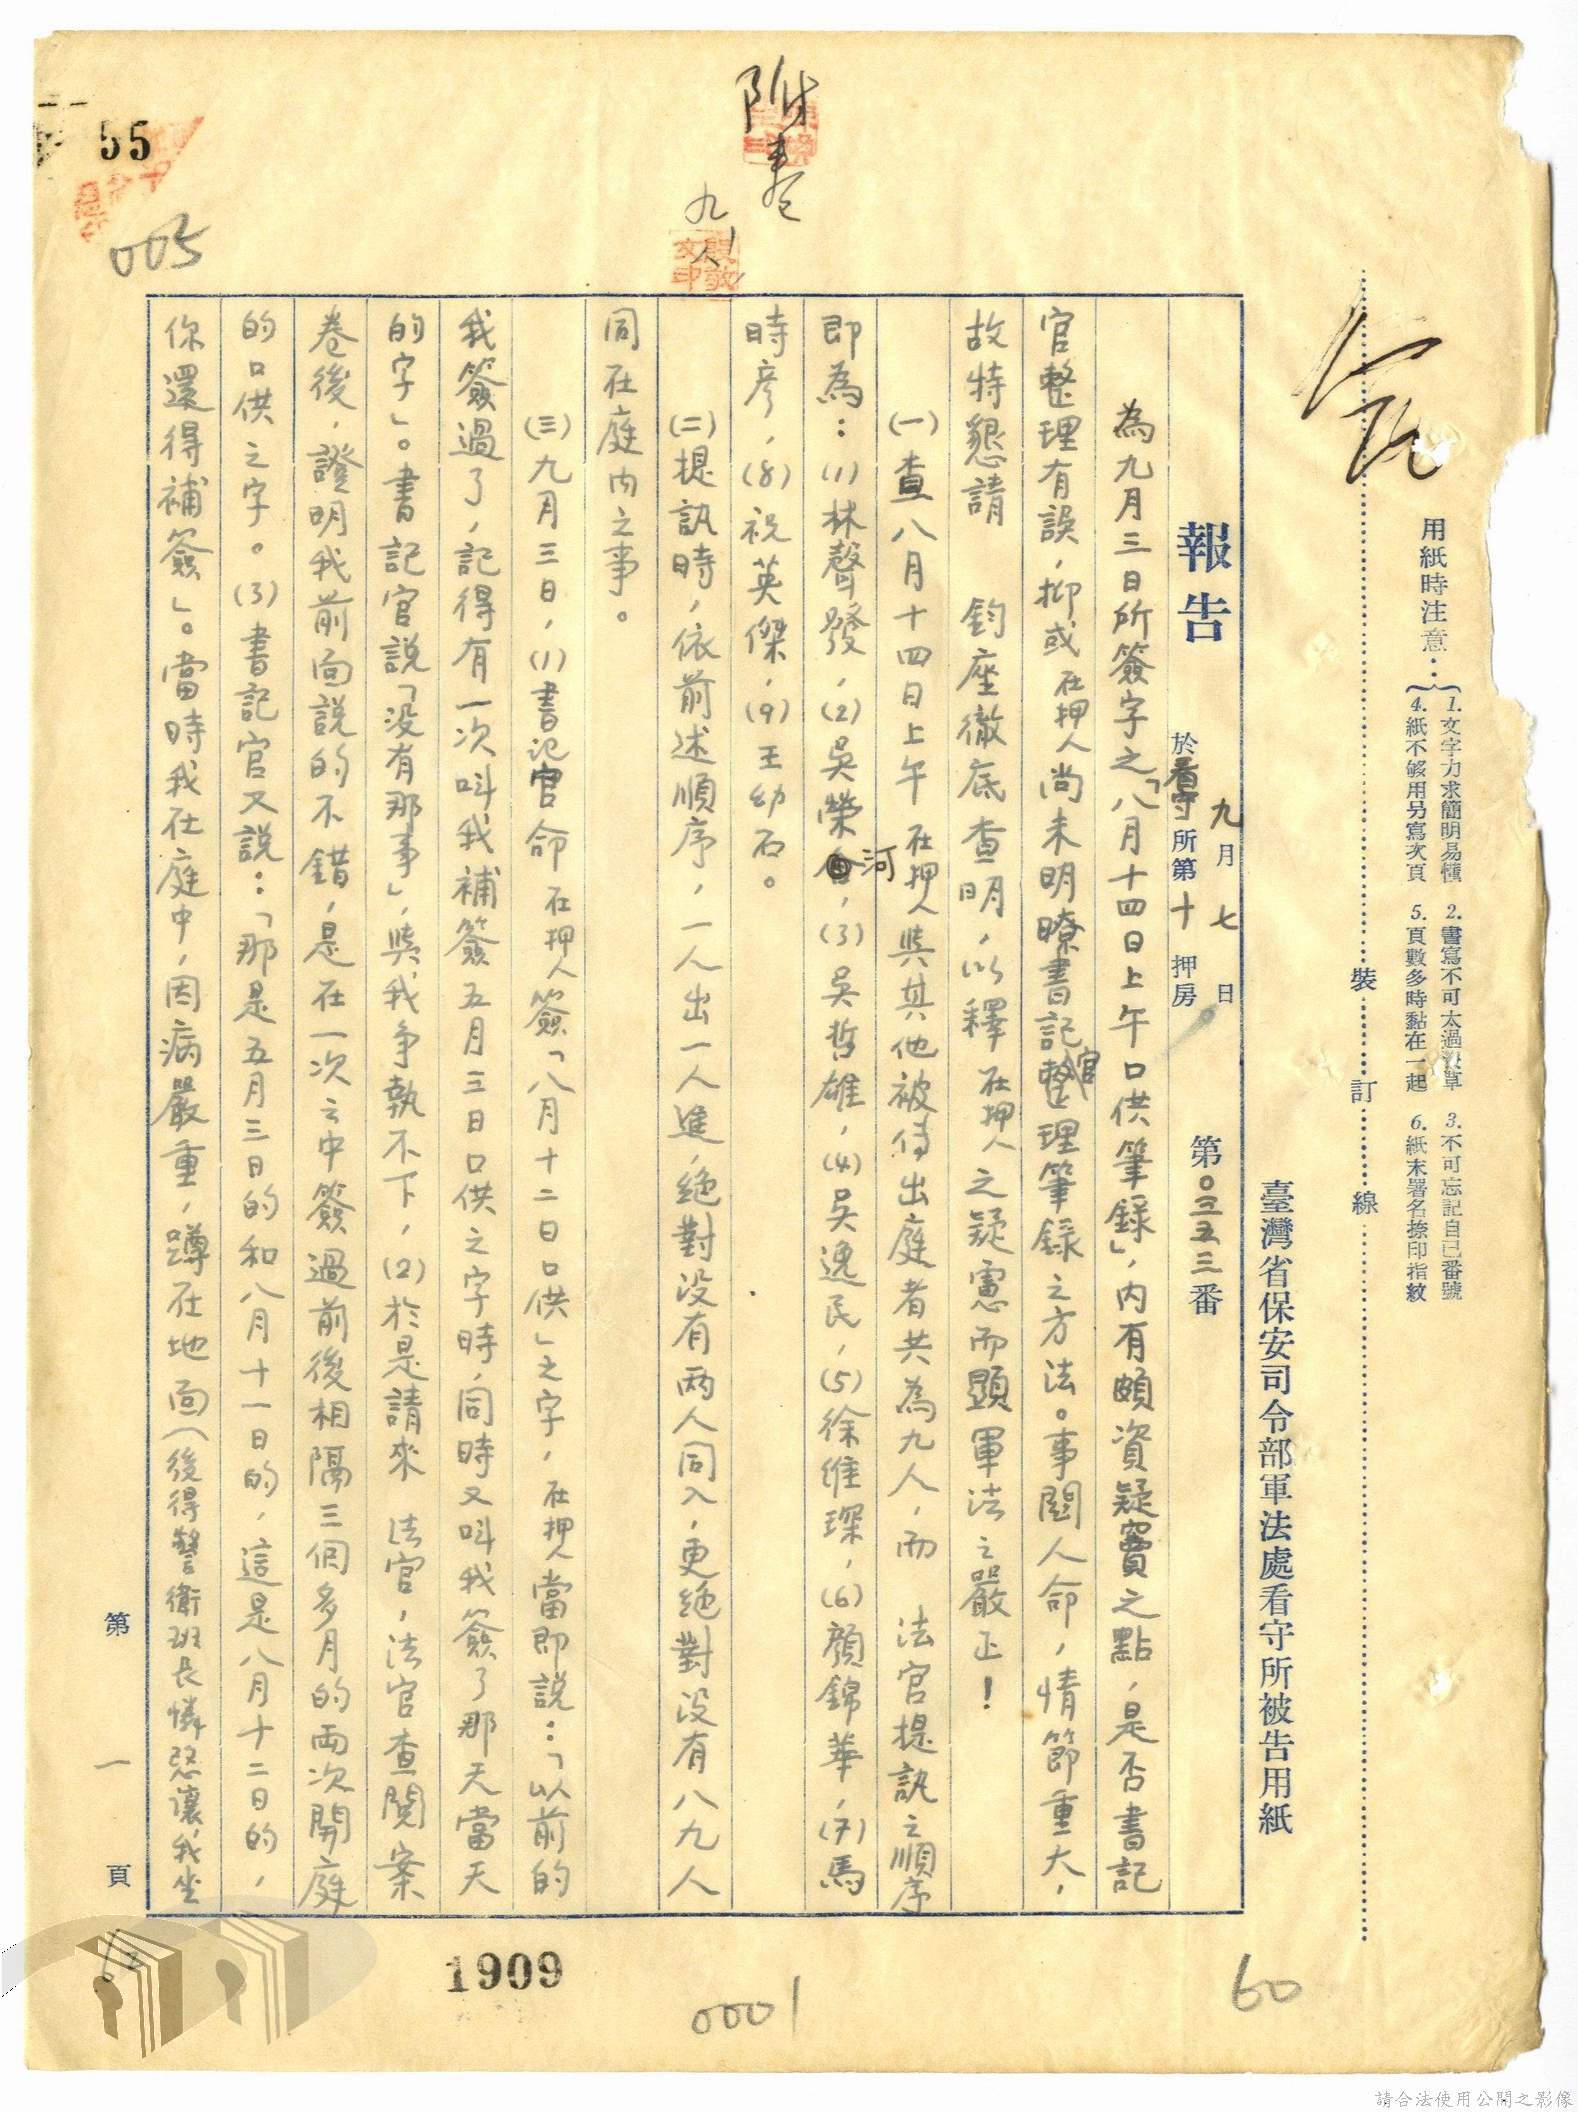 用紙時注意：
1. 文字力求簡明易懂 2. 書寫不可太過潦草 3. 不可忘記自已番號
4. 紙不够用另寫次頁 5. 頁數多時黏在一起 6. 紙末署名捺印指紋
裝 訂 線
臺灣省保安司令部軍法處看守所被告用紙
報告
九月七日
於看守所第十押房
第〇三五三番
為九月三日所簽字之「八月十四日上午口供筆錄」，內有頗資疑竇之點，是否書記
官整理有誤，抑或在押人尚未明瞭書記官整理筆錄之方法。事關人命，情節重大，
故特懇請 鈞座徹底查明，以釋在押人之疑慮而顯軍法之嚴正！
(一)查八月十四日上午 在押人與其他被傳出庭者共為九人，而 法官提訊之順序
即為：(1)林聲發，(2)吳榮河，(3)吳哲雄，(4)吳逸民，(5)徐維琛，(6)顏錦華，(7)馬
時彥，(8)祝英傑，(9)王幼石。
(二)提訊時，依前述順序，一人出一人進，絕對没有两人同入，更絕對没有八九人
同在庭內之事。
(三)九月三日，(1)書记官命 在押人簽「八月十二日口供」之字，在押人當即説：「以前的
我簽過了，記得有一次叫我補簽五月三日口供之字時，同時又叫我簽了那天當天
的字」。書記官説「没有那事」，與我争執不下，(2)於是請來 法官，法官查閱案
卷後，證明我前面説的不錯，是在一次之中簽過前後相隔三個多月的兩次開庭
的口供之字。(3)書記官又説：「那是五月三日的和八月十一日的，這是八月十二日的，
你還得補簽」。當時我在庭中，因病嚴重，蹲在地面(後得警衛班長憐恐讓我坐
第 一 頁
附卷
九
殷敬文印
55
005
1909
0001
60
62
請合法使用公開之影像